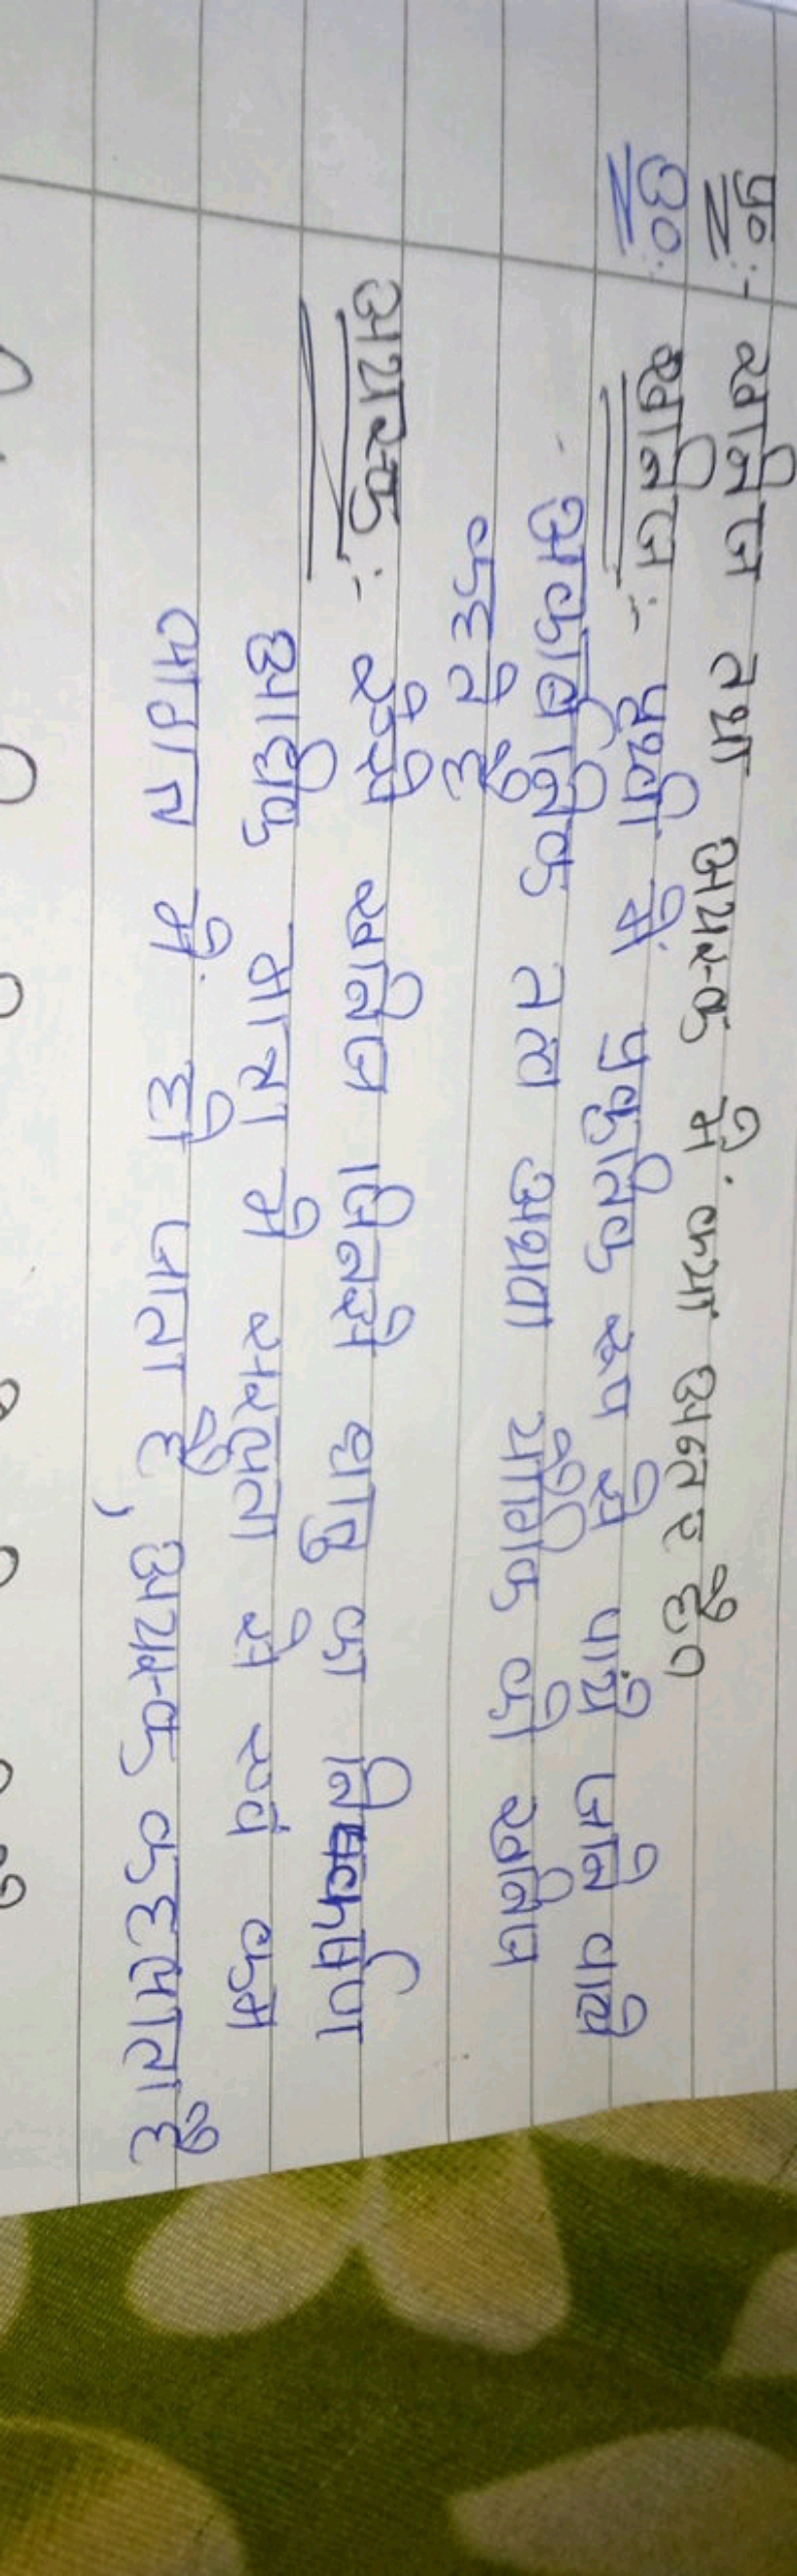 प्र०:- खनिज तथा अयस्क में क्या अन्तर है?
उ०:- खनिज:- पृथ्वी में प्रकृतिक रूप से पाये जाने वाले
अकार्बनिक तत्व अथवा यौगिक को खनिज
कहते है
अयस्क:- ऐसे खनिज जिनसे धातु का निष्कर्षण
अधिक मात्रा में सरलता से एवं कम
लागत में हो जाता है, अयस्क कहलाता है